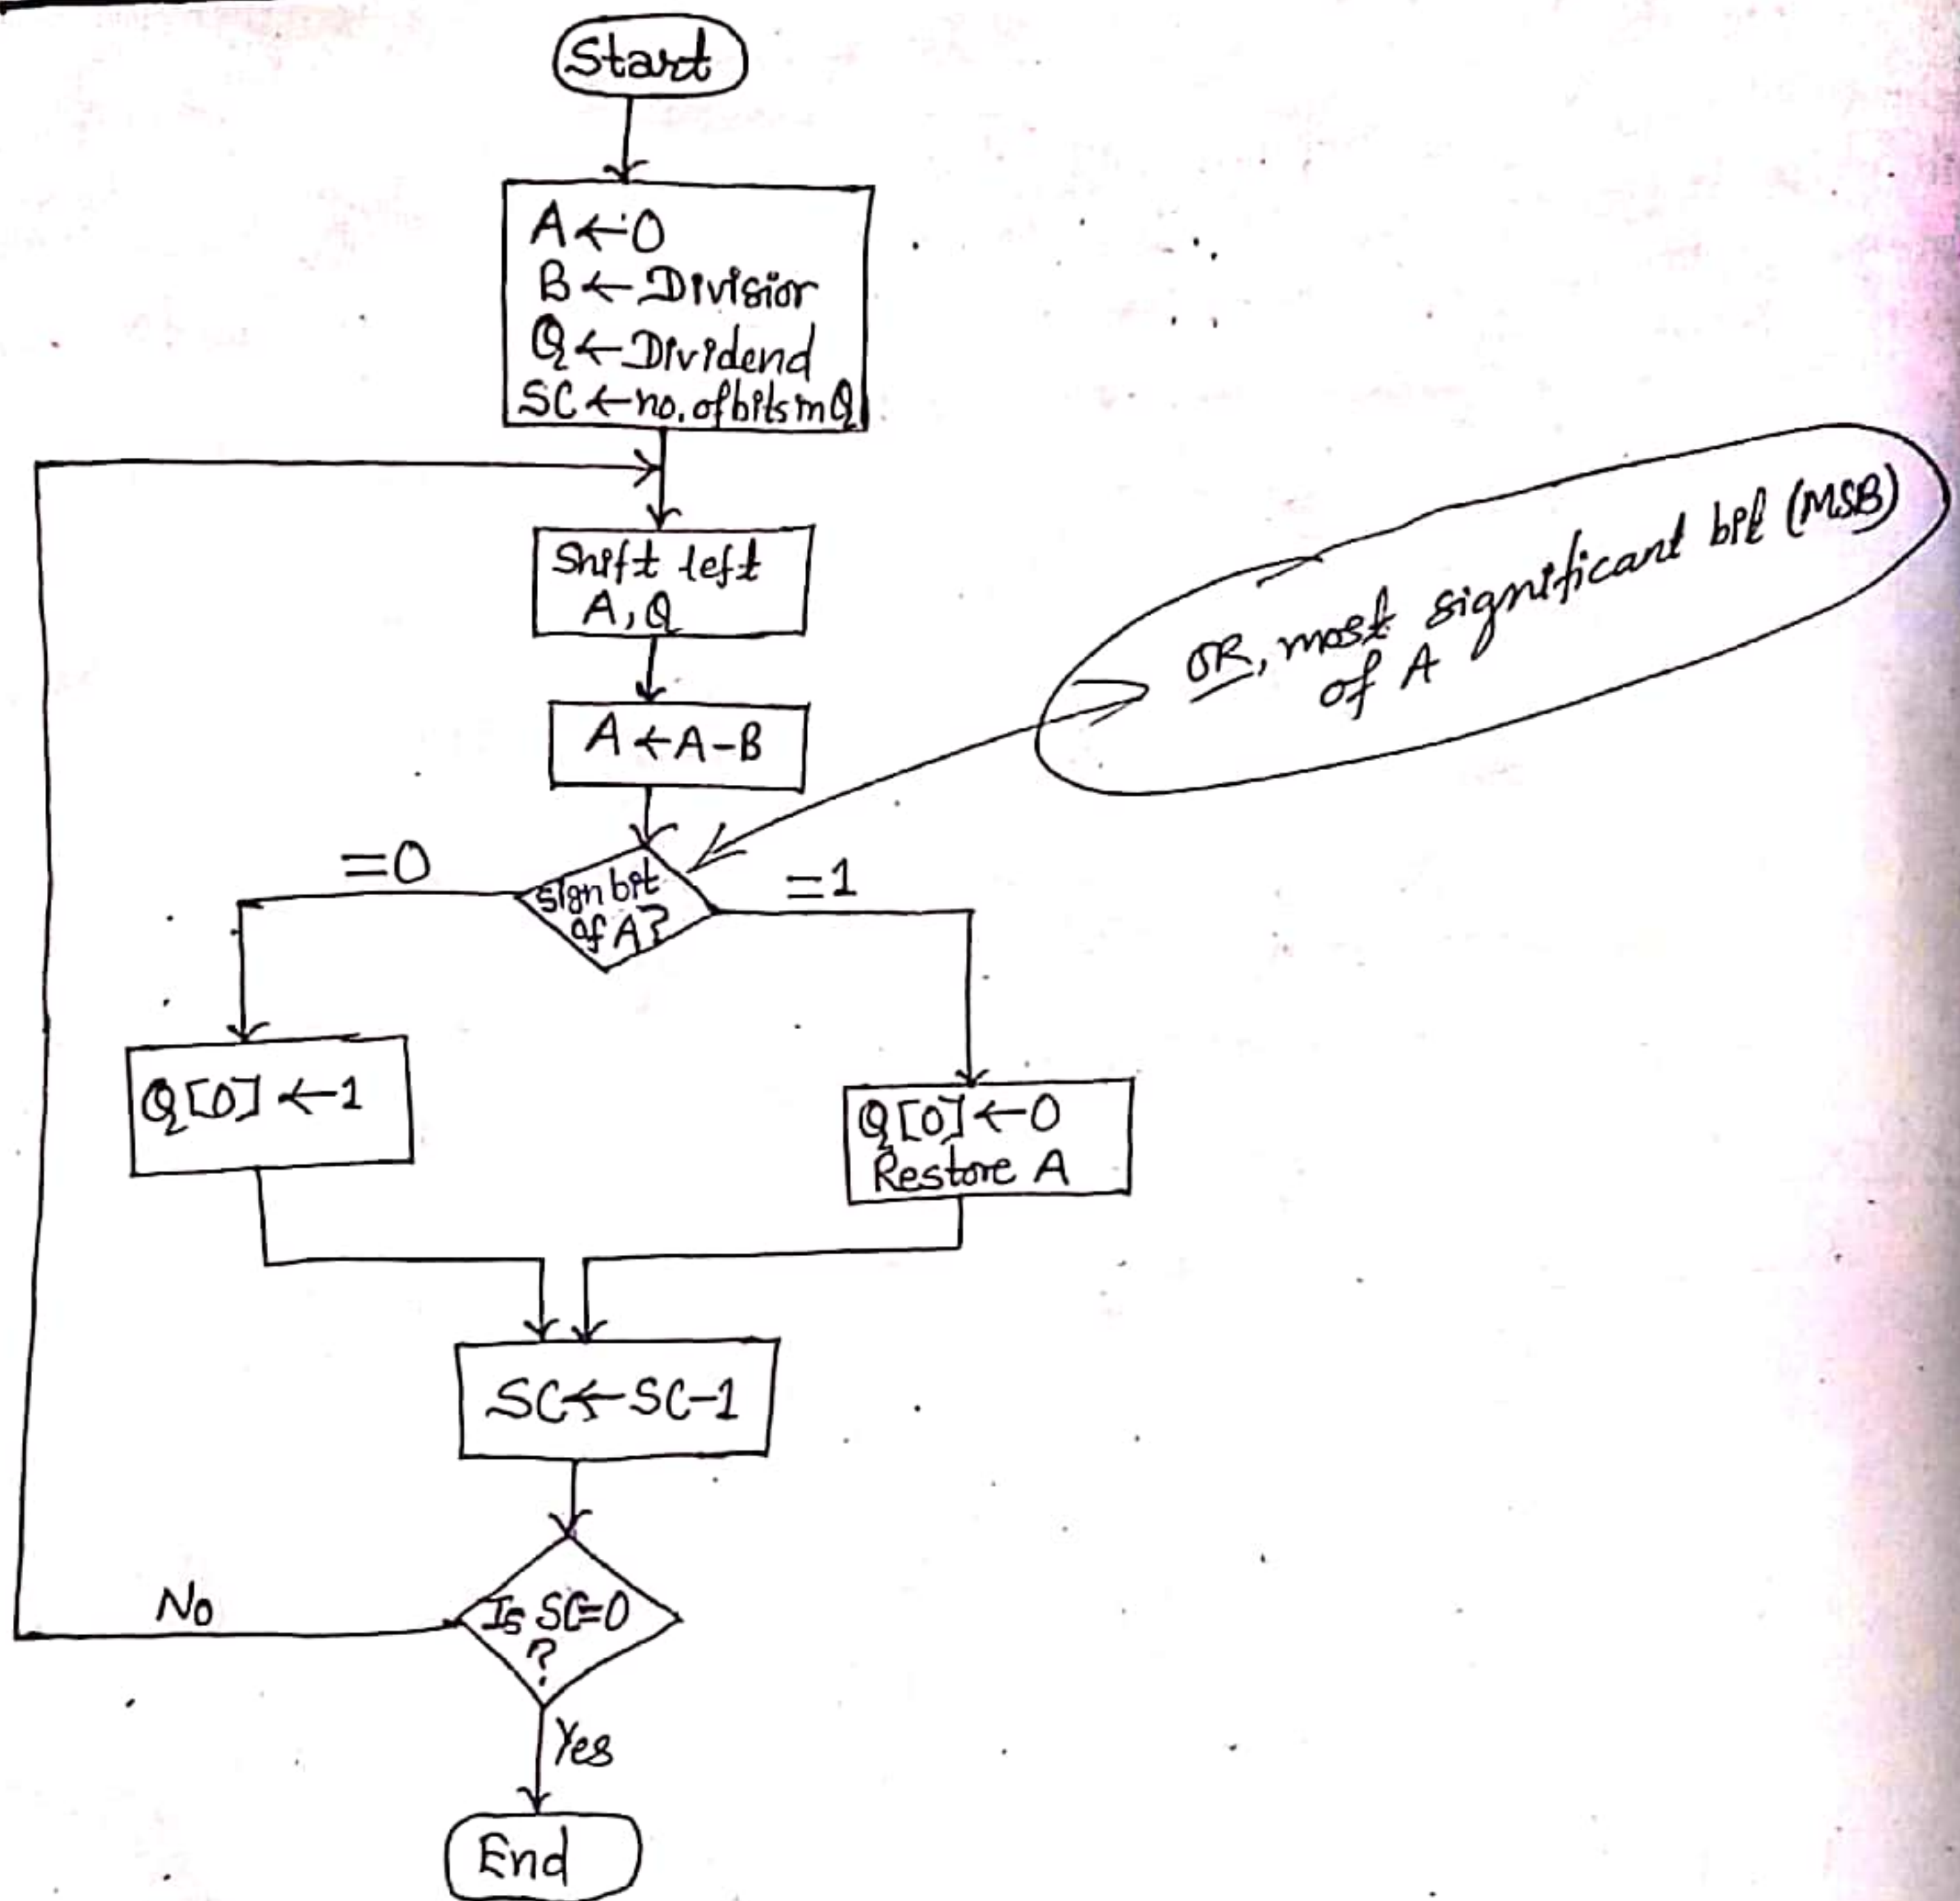 Start
A ← 0
B ← Divisior
Q ← Dividend
SC ← no. of bits in Q
Shift left
A, Q
OR, most significant bit (MSB)
of A
A ← A-B
=0
sign bit
of A?
=1
Q[0] ← 1
Q[0] ← 0
Restore A
SC ← SC-1
Is SC=0
?
No
Yes
End